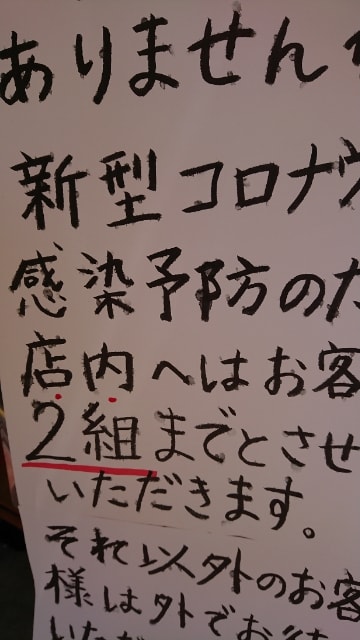 ありません
新型コロナウ
感染予防のた
店内へはお客
2組までとさせ
いただきます。
それ以外のお客
様は外でお待
いただ